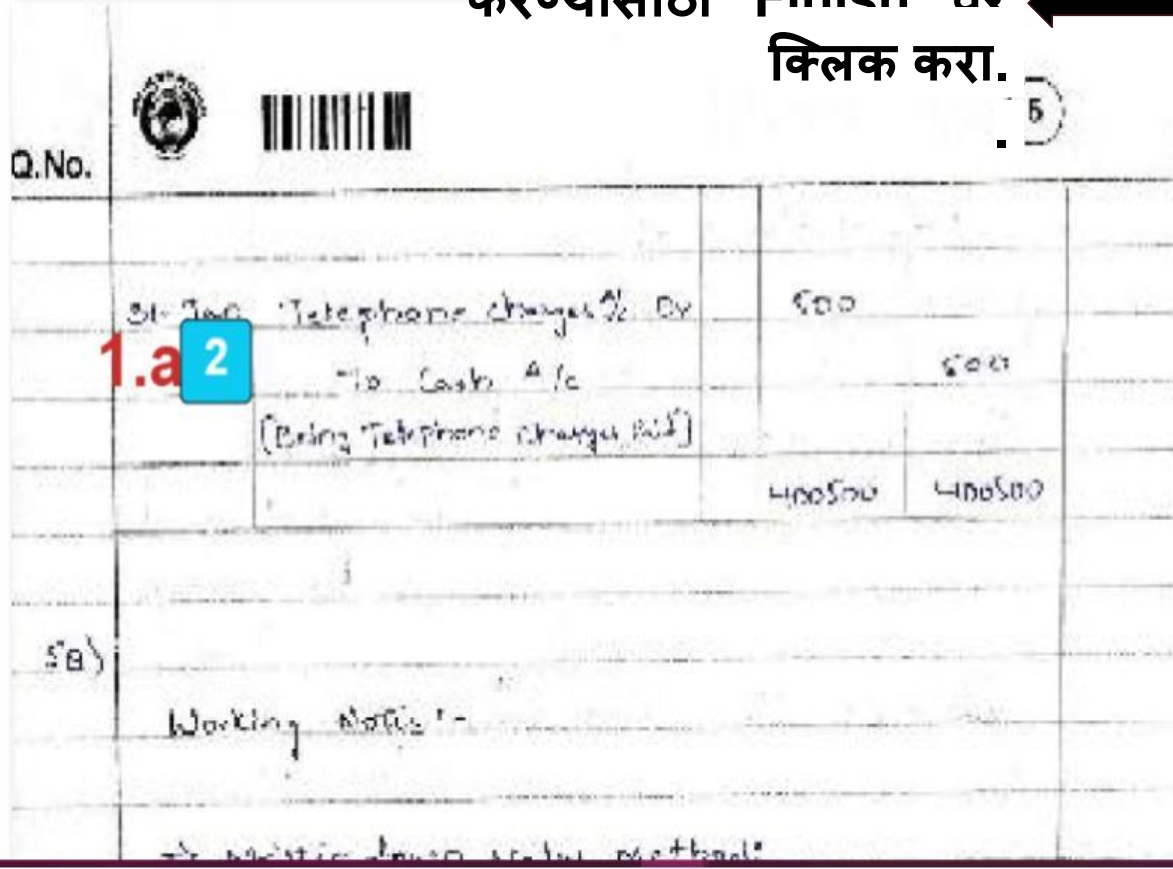 करण्यासाठी Finish वर
क्लिक करा.
.
5
Q.No.
31-Jan Telephone charges A/c Dr 500
1.a 2
To Cash A/c 500
(Being Telephone charges Paid)
400500 400500
5B)
Working Notes :-
method: